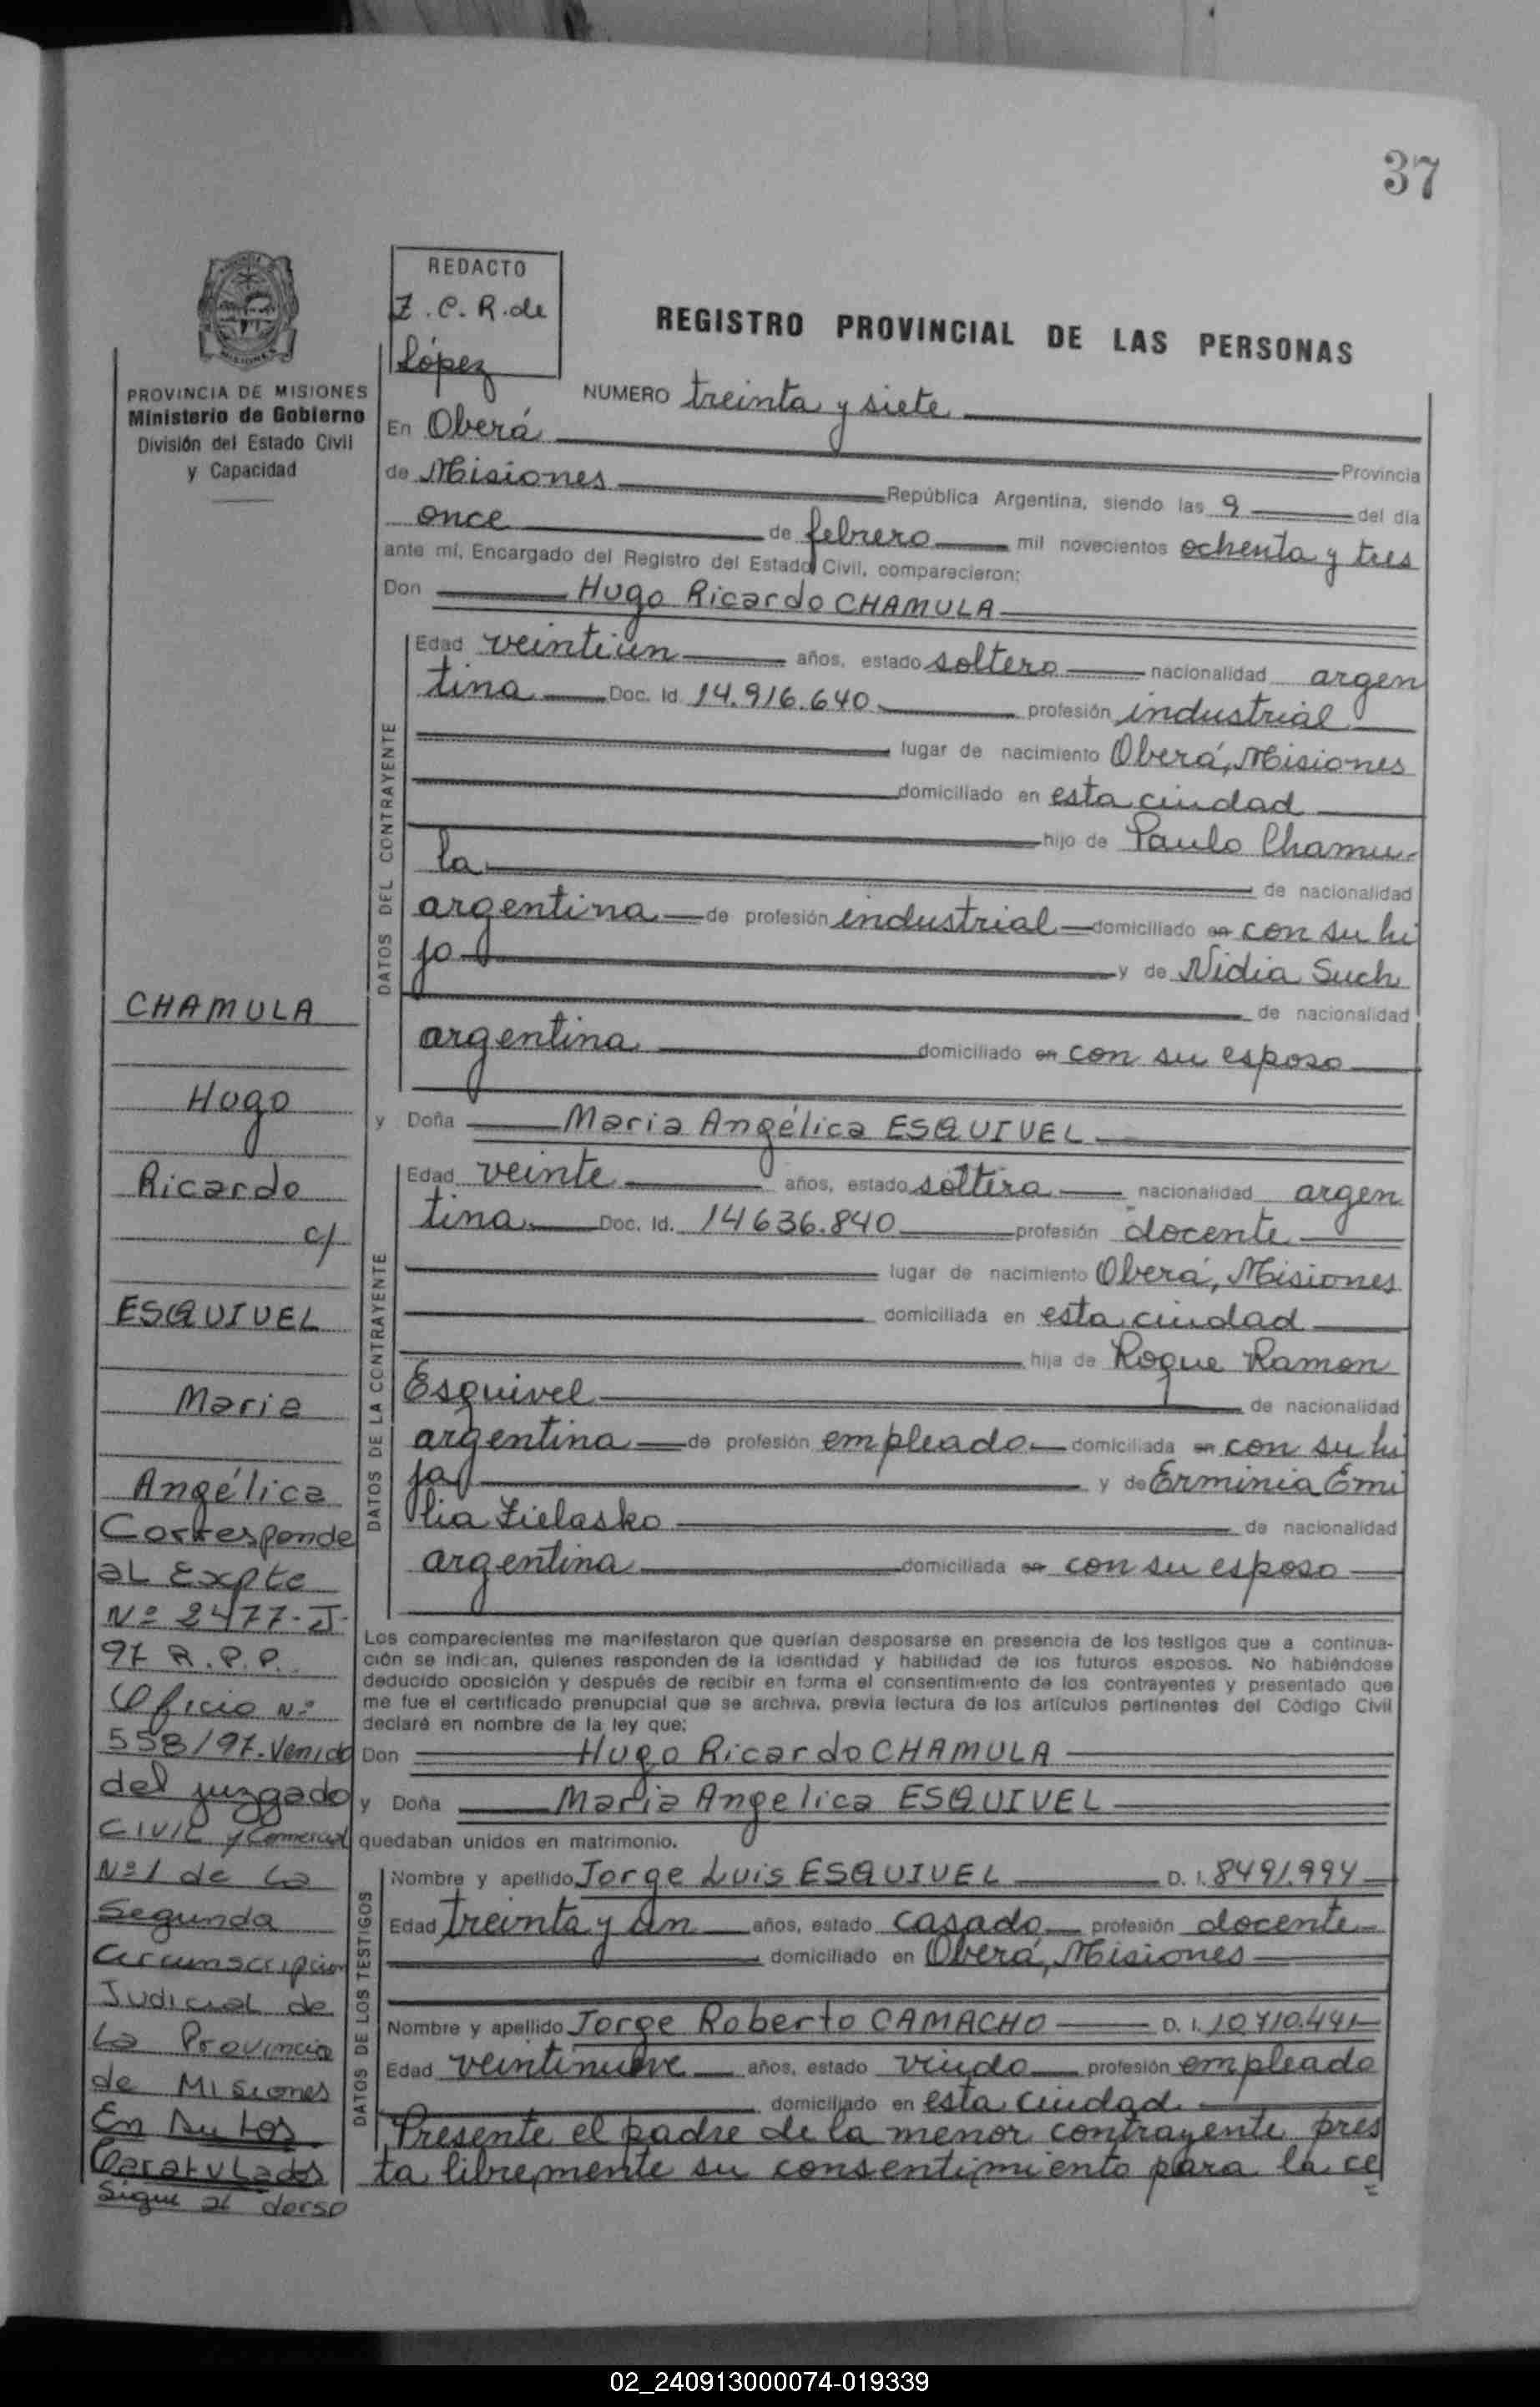 37
REDACTO
Z.C.R. de
López
REGISTRO PROVINCIAL DE LAS PERSONAS
PROVINCIA DE MISIONES
Ministerio de Gobierno
División del Estado Civil
y Capacidad
NUMERO treinta y siete
En Oberá Provincia
de Misiones República Argentina, siendo las 9 del día
once de febrero mil novecientos ochenta y tres
ante mí, Encargado del Registro del Estado Civil, comparecieron:
Don Hugo Ricardo CHAMULA
DATOS DEL CONTRAYENTE
Edad veintiun años, estado soltero nacionalidad argen
tina Doc. Id. 14.916.640 profesión industrial
lugar de nacimiento Oberá, Misiones
domiciliado en esta ciudad
hijo de Paulo Chamu-
la de nacionalidad
argentina de profesión industrial domiciliado en con su hi
jo y de Nidia Such
de nacionalidad
argentina domiciliado en con su esposo
y Doña Maria Angélica ESQUIVEL
DATOS DE LA CONTRAYENTE
Edad veinte años, estado soltera nacionalidad argen
tina Doc. Id. 14636.840 profesión docente
lugar de nacimiento Oberá, Misiones
domiciliada en esta ciudad
hija de Roque Ramon
Esquivel de nacionalidad
argentina de profesión empleado domiciliada en con su hi
ja y de Erminia Emi
lia Zielasko de nacionalidad
argentina domiciliada en con su esposo
Los comparecientes me manifestaron que querían desposarse en presencia de los testigos que a continua-
ción se indican, quienes responden de la identidad y habilidad de los futuros esposos. No habiéndose
deducido oposición y después de recibir en forma el consentimiento de los contrayentes y presentado que
me fue el certificado prenupcial que se archiva, previa lectura de los artículos pertinentes del Código Civil
declaré en nombre de la ley que:
Don Hugo Ricardo CHAMULA
y Doña Maria Angelica ESQUIVEL
quedaban unidos en matrimonio.
DATOS DE LOS TESTIGOS
Nombre y apellido Jorge Luis ESQUIVEL D. I. 8491.994
Edad treinta y un años, estado casado profesión docente
domiciliado en Oberá, Misiones
Nombre y apellido Jorge Roberto CAMACHO D. I. 10710.441
Edad veintinueve años, estado viudo profesión empleado
domiciliado en esta ciudad
Presente el padre de la menor contrayente pres
ta libremente su consentimiento para la ce
CHAMULA
Hugo
Ricardo
c/
ESQUIVEL
Maria
Angélica
Corresponde
al Expte
Nº 2477-J-
97 R.P.P.
Oficio Nº
558/97. Venido
del juzgado
CIVIL y Comercial
Nº 1 de La
Segunda
Circunscripcion
Judicial de
La Provincia
de Misiones
En Autos
Caratulados
Sigue al dorso
02_240913000074-019339